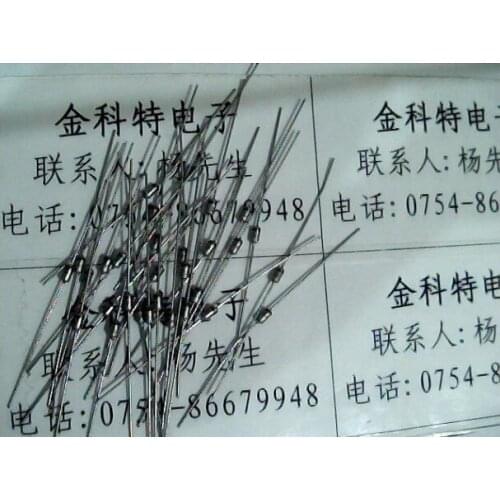 金科特电子
联系人:杨先生
电话:0754-86679948
金科特电子
联系人:杨先
电话:0754-86
金科特电子
联系人:杨先生
电话:0754-86679948
金科特电
联系人:杨
电话:0754-8